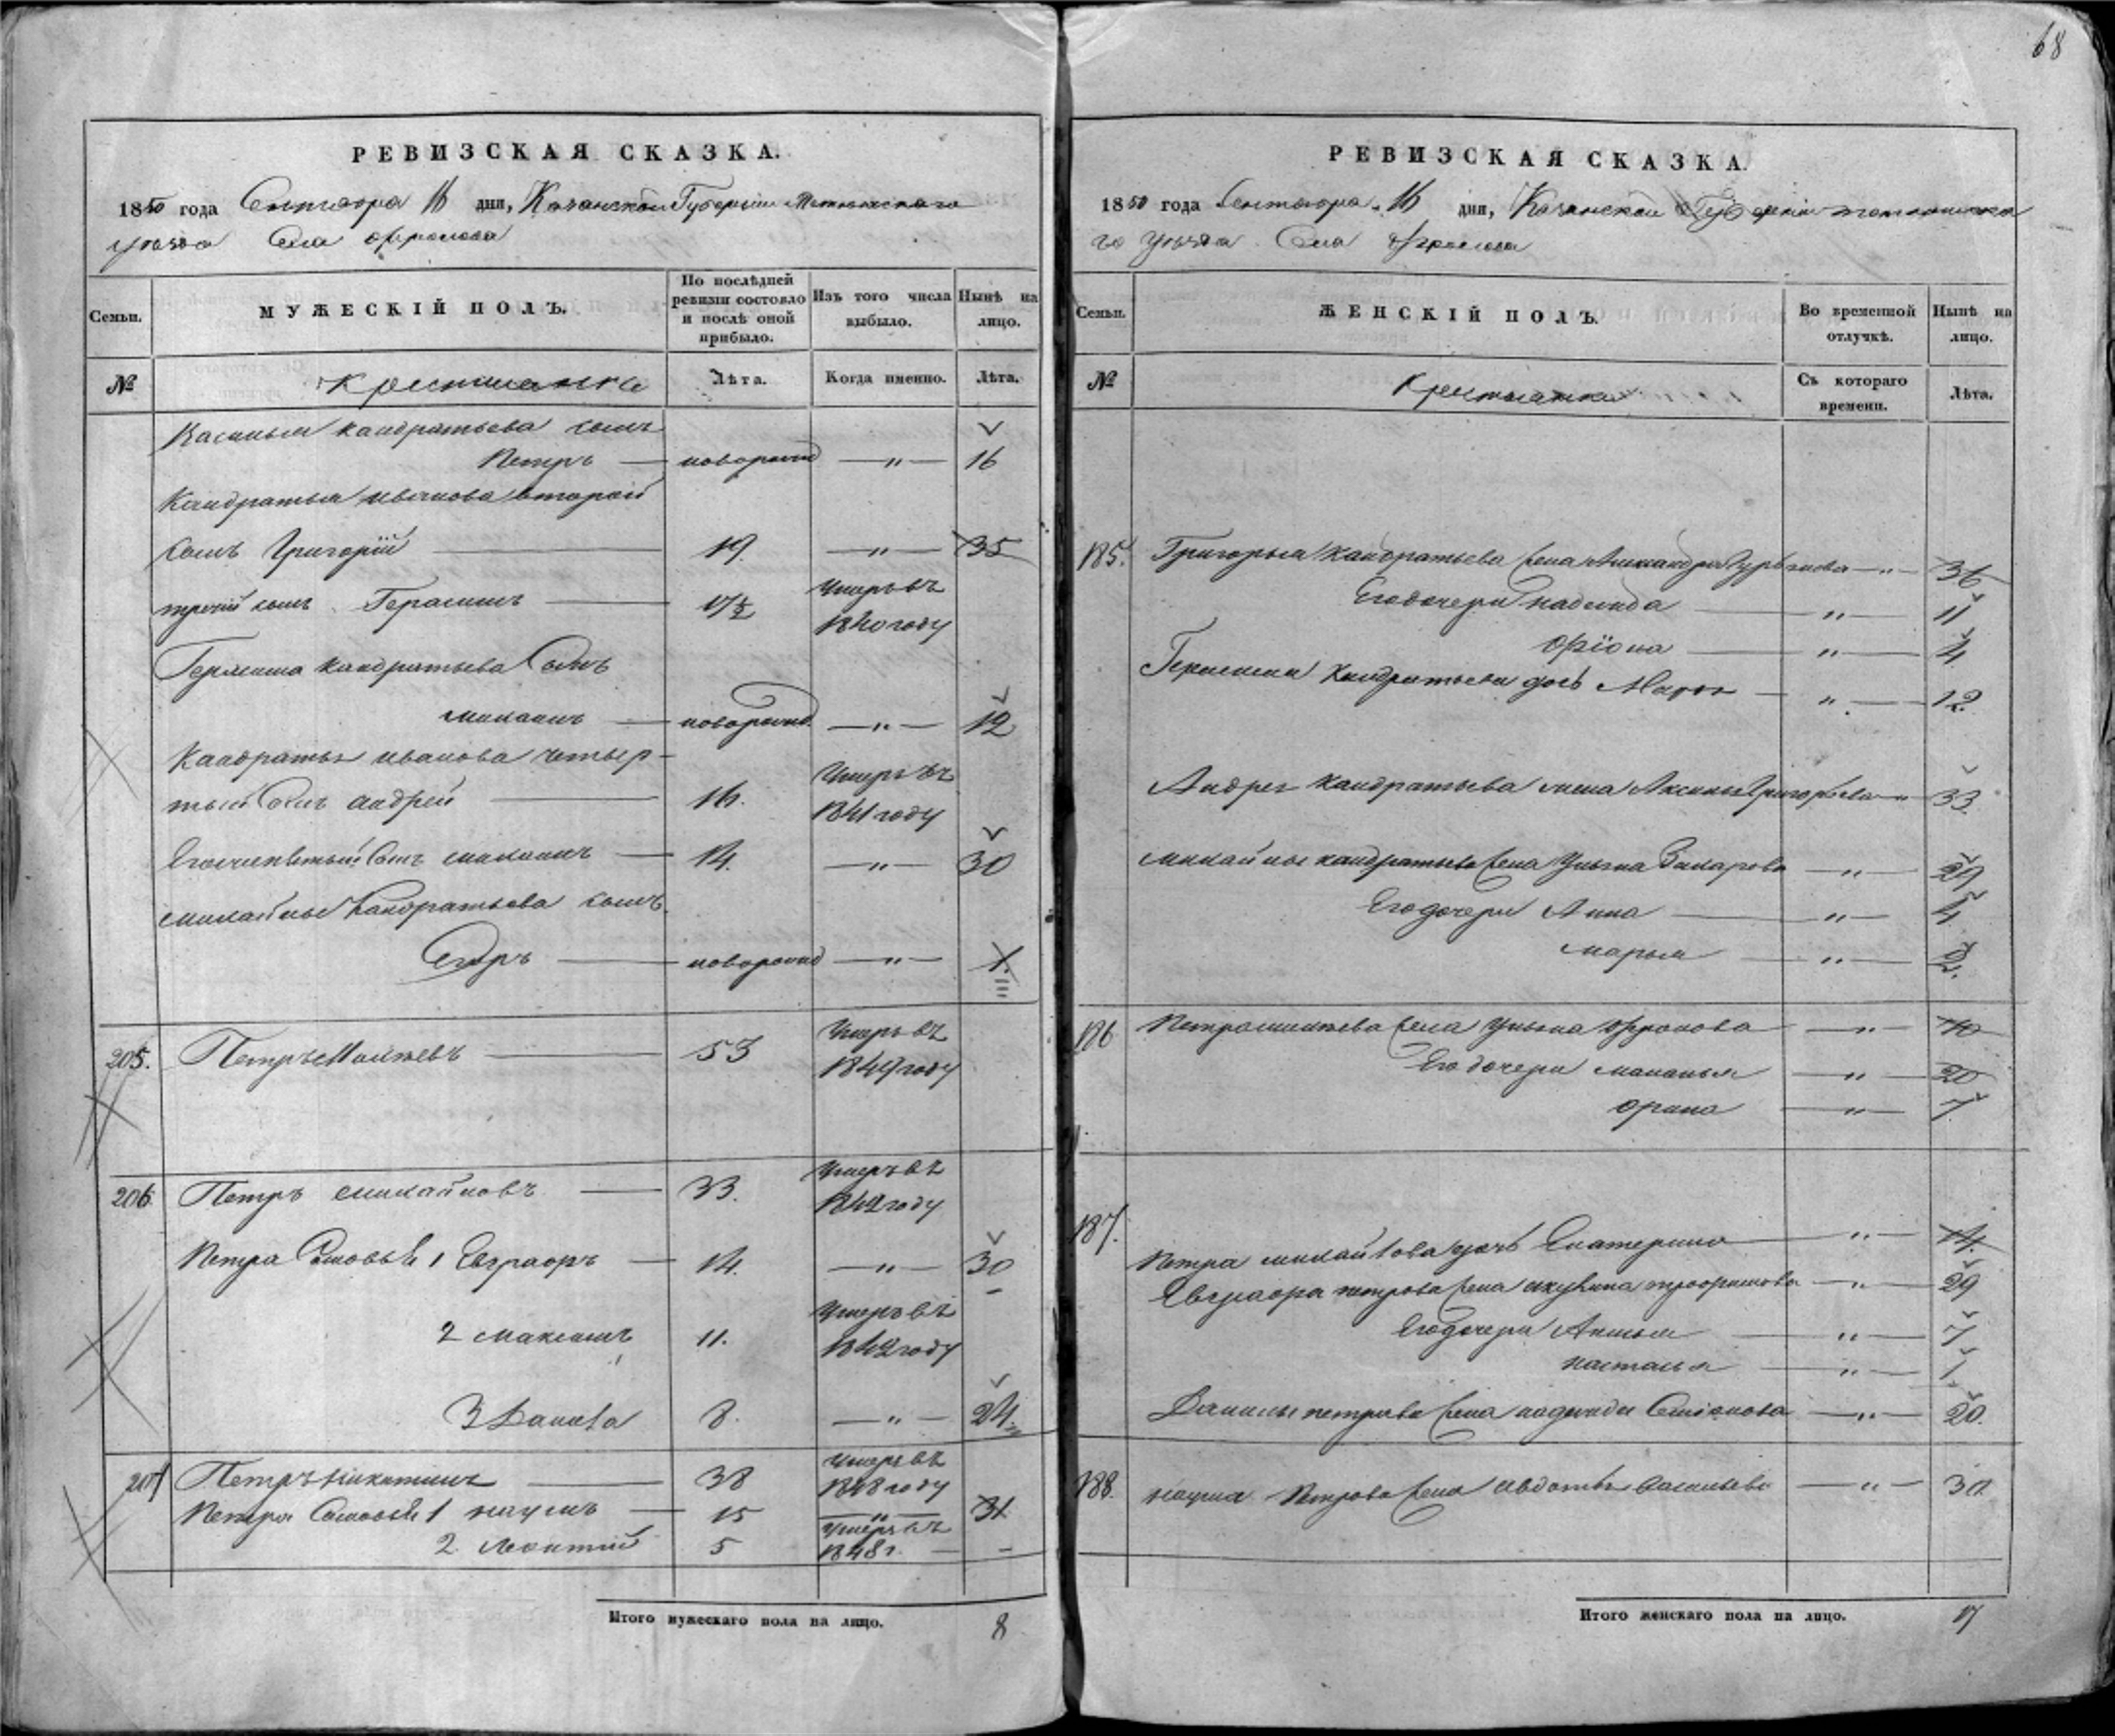 68
РЕВИЗСКАЯ СКАЗКА.
1850 года Сентября 16 дня, Казанской Губернии Тетюшскаго
уезда Села Фролова
Семьи.
МУЖЕСКІЙ ПОЛЪ.
По послѣдней ревизіи состояло и послѣ оной прибыло.
Изъ того числа выбыло.
Нынѣ на лицо.
№
Крестьяне
Лѣта.
Когда именно.
Лѣта.
Касьяна кандратьева сынъ
Петръ — новорожд — " — 16
Кандратья иванова второй
сынъ Григорій — 19. — " — 35
третій сынъ Герасимъ — 17½ Умеръ въ
1840 году
Герасима кандратьева Сынъ
михаилъ — новорожд. — " — 12
Кандратья иванова четвер-
тый Сынъ андрей — 16. Умеръ въ
1841 году
Его пятый Сынъ михаилъ — 14. — " — 30
михайлы Кандратьева сынъ
Егоръ — новорожд — " — 1.
205. Петръ — 53 Умеръ въ
1849 году
206 Петръ михайловъ — 33. Умеръ въ
1842 году
Петра Сыновья 1 Евграфъ — 14. — " — 30
2 максимъ 11. Умеръ въ
1842 году
3 Данила 8. — " — 24.
207 Петръ никитинъ — 38 Умеръ въ
1848 году
Петра Сыновья 1 наумъ — 15 — " — 31
2. Леонтій 5 Умеръ въ
1848 г. — -
Итого мужескаго пола на лицо. 8
РЕВИЗСКАЯ СКАЗКА.
1850 года Сентября 16 дня, Казанской Губерніи тетюшска
го уезда Села Фролова
Семьи.
ЖЕНСКІЙ ПОЛЪ.
Во временной отлучкѣ.
Нынѣ на лицо.
№
Крестьянки
Съ котораго времени.
Лѣта.
185. Григорья кандратьева жена — " — 36
Его дочери надежда — " — 11
Орина — " — 4
Герасима кандратьева дочь Марья — " — 12.
Андрея кандратьева жена Аксинья Григорьева " 33
михайлы кандратьева жена Ульяна Захарова — " — 29
Его дочери Анна — " — 4
марья — " — 2.
186 Петра жена Ульяна — " — 40
Его дочери маланья — " — 20
орина — " — 7
187. Петра михайлова дочь Екатерина — " — 14.
Евграфа петрова жена акулина трофимова — " — 29
Его дочери — " — 7
настасья — " — 1
Данилы петрова жена надежда — " — 20.
188. наума Петрова жена авдотья васильева — " — 30.
Итого женскаго пола на лицо. 17